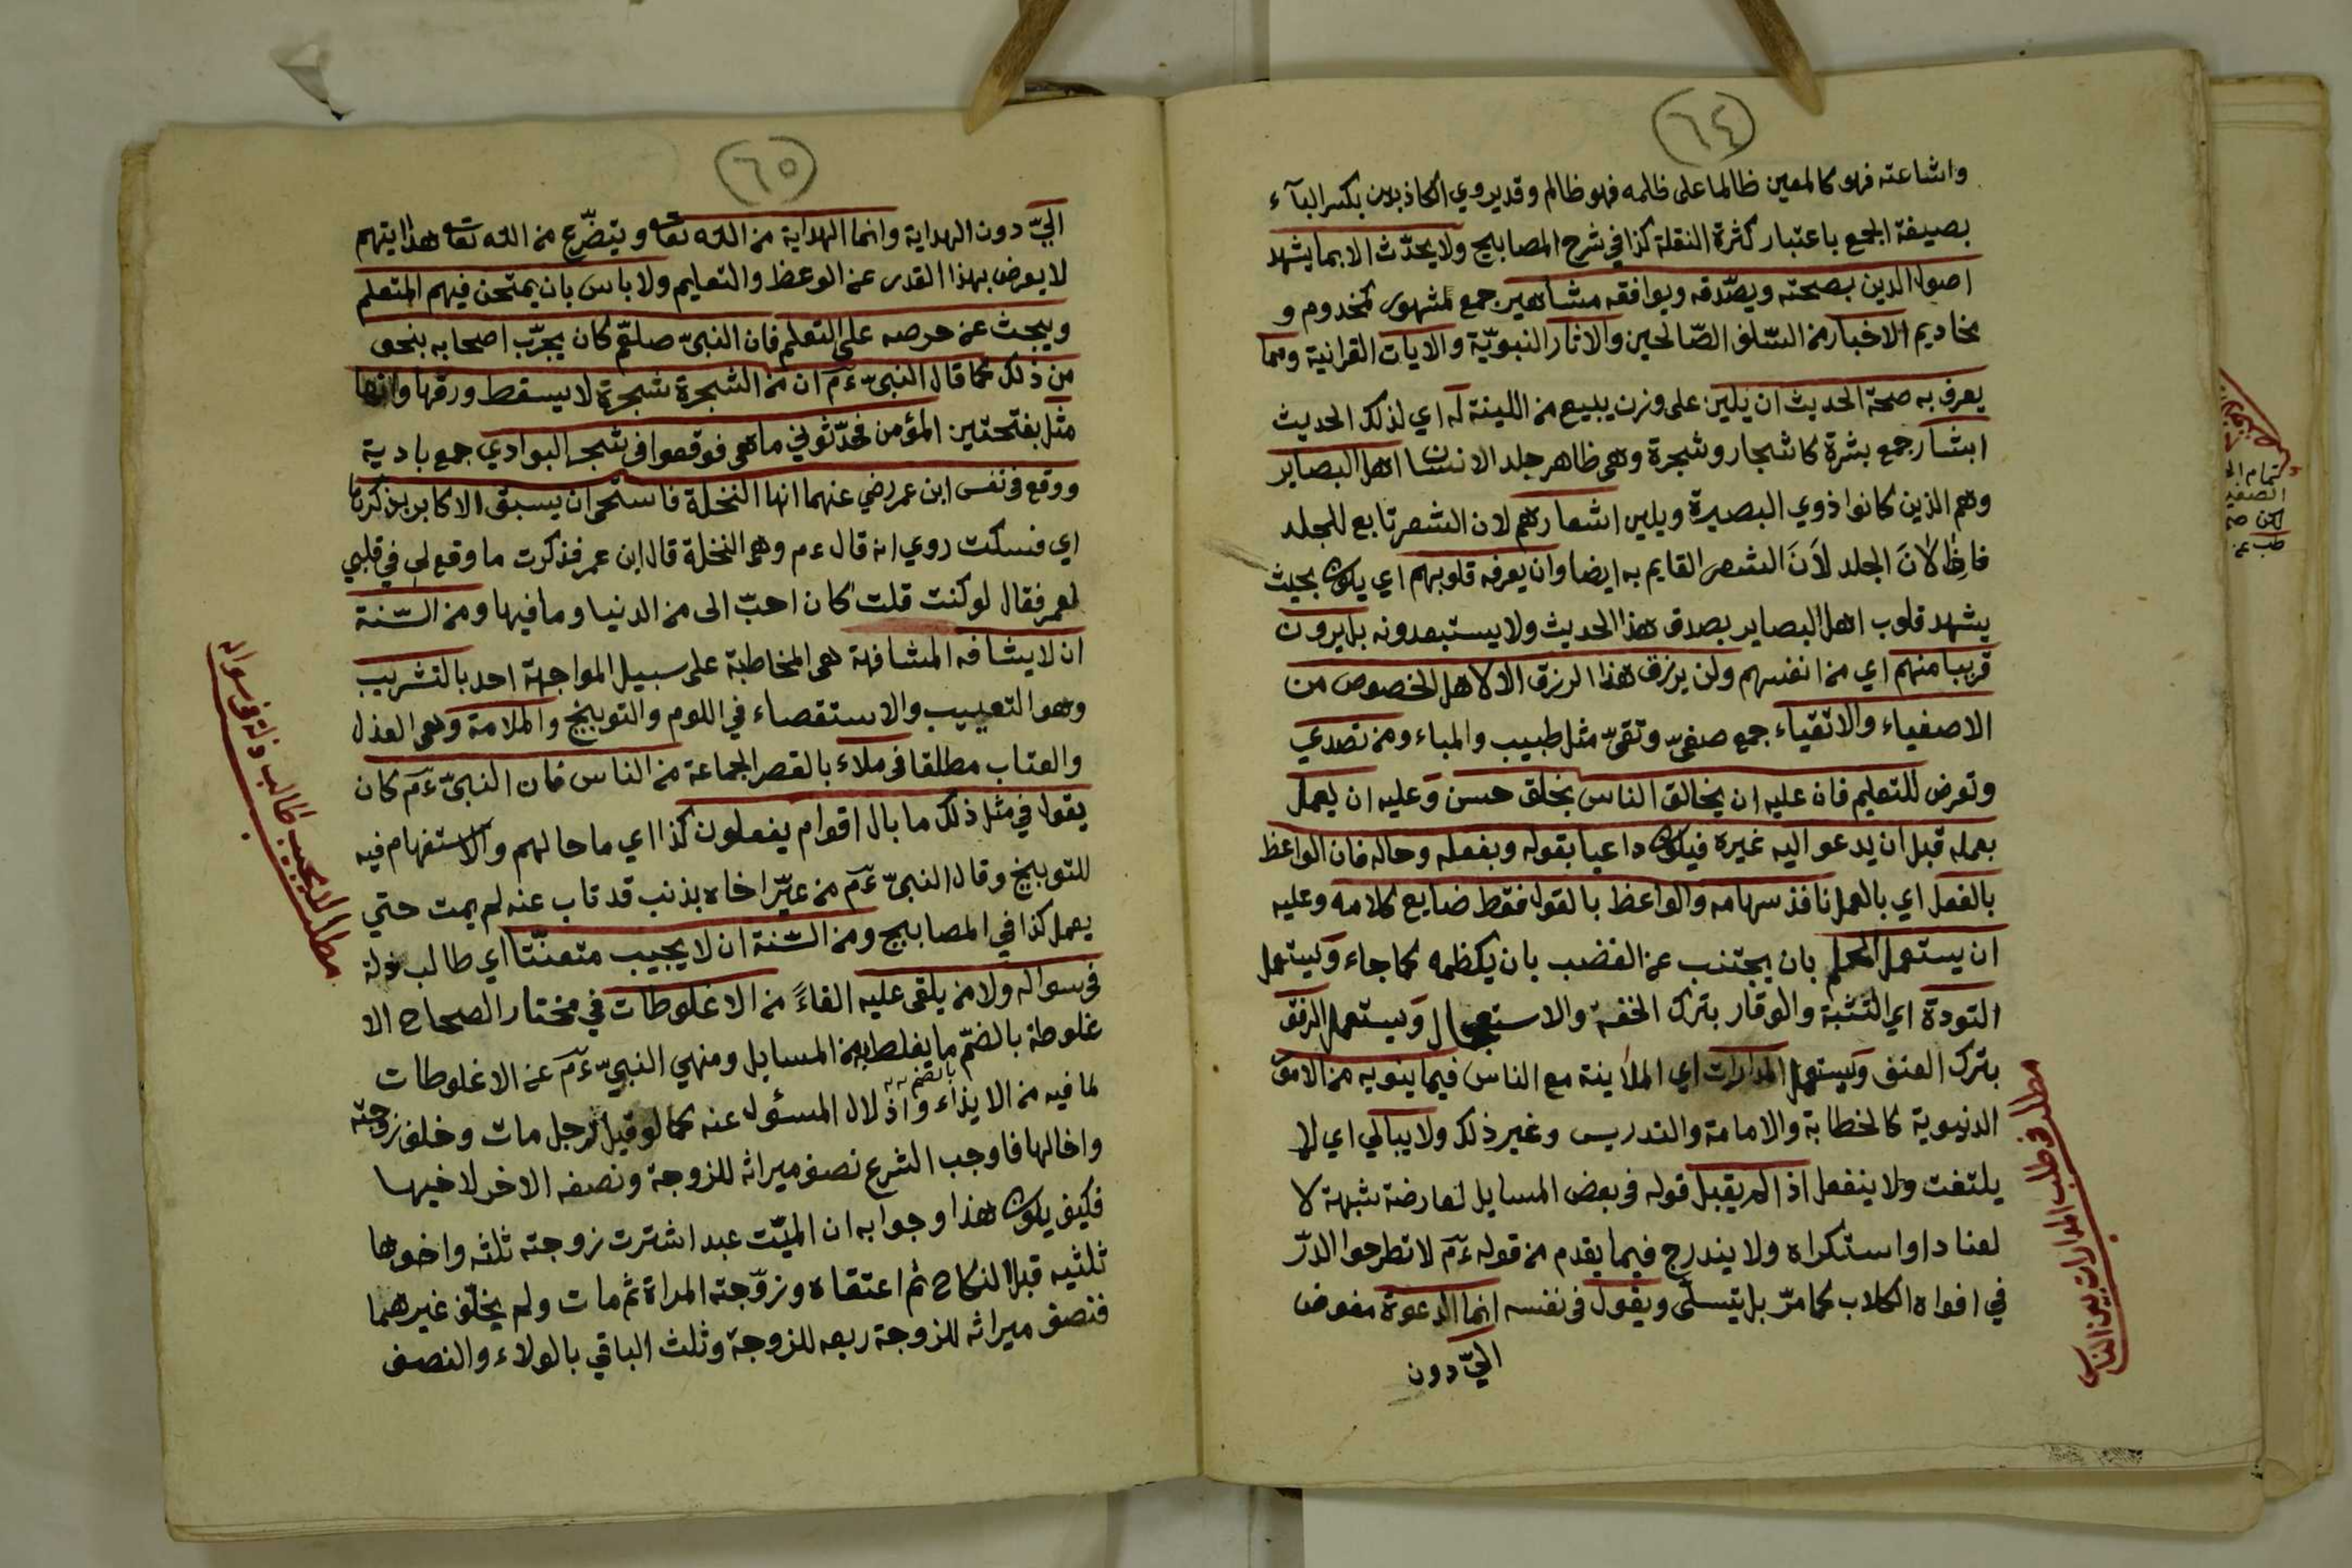 ٦٤
واشاعته فهو كالمعين ظالما على ظلمه فهو ظالم وقد يروي الكاذبين بكسر البآء
بصيغة الجمع باعتبار كثرة النقلة كذا في شرح المصابيح ولا يحدّث الا بما يشهد
اصول الدين بصحته ويصدّقه ويوافقه مشاهير جمع مشهور كمخدوم و
مخاديم الاخبار من السّلف الصّالحين والاثار النبويّة والايات القرانية ومما
يعرف به صحة الحديث ان يلين على وزن يبيع من اللينة له اي لذلك الحديث
ابشار جمع بشرة كاشجار وشجرة وهى ظاهر جلد الانسان اهل البصاير
وهم الذين كانوا ذوي البصيرة ويلين اشعارهم لان الشعر تابع للجلد
فاذا لانَ الجلد لاَنَ الشعر القايم به ايضا وان يعرفه قلوبهم اي يكون بحيث
يشهد قلوب اهل البصاير بصدق هذا الحديث ولا يستبعدونه بل يرون
قريبا منهم اي من انفسهم ولن يرزق هذا الرزق الا لاهل الخصوص من
الاصفياء والاتقياء جمع صفىّ وتقىّ مثل طبيب والمباء ومن تصدي
وتعرض للتعليم فان عليه ان يخالق الناس بخلق حسن وعليه ان يعمل
بعمله قبل ان يدعو اليه غيره فيكون داعيا بقوله وبفعله وحاله فان الواعظ
بالفعل اي بالعمل نافذ سهامه والواعظ بالقول فقط ضايع كلامه وعليه
ان يستعمل الحلم بان يجتنب عن الغضب بان يكظمه كما جاء ويستعمل
التودة اي التثبة والوقار بترك الخفة والاستعجال ويستعمل الرفق
بترك العنف ويستعمل المدارات اي الملاينة مع الناس فيما ينويه من الامور
الدنيوية كالخطابة والامامة والتدريس وغير ذلك ولا يبالي اي لا
يلتفت ولا ينفعل اذا لم يقبل قوله في بعض المسايل لعارضة شبهة لا
لعنادا واستكراه ولا يندرج فيما يقدم من قوله عم لا تطرحوا الدرّ
في افواه الكلاب كما مرّ بل يتسلّى ويقول في نفسه انما الدعوة مفوض
اليّ دون
مطلب في طلب المدارات بين الناس
٦٥
اليّ دون الهداية وانما الهداية من الله تعا ويتضرّع من الله تعا هدايتهم
لا يعرض بهذا القدر عن الوعظ والتعليم ولا باس بان يمتحن فيهم المتعلم
ويبحث عن حرصه على التعلم فان النبىّ صلعم كان يجرّب اصحابه بنحو
من ذلك كما قال النبىّ عم ان من الشجرة شجرة لا يسقط ورقها وانها
مثل بفتحتين المؤمن فحدّثوني ما هي فوقعوا في شجر البوادي جمع بادية
ووقع في نفس ابن عمر رضي عنهما انها النخلة فاستحى ان يسبق الاكابر بذكرنا
اي فسكت روي انه قال عم وهي النخلة قال ابن عمر فذكرت ما وقع لي في قلبي
لعمر فقال لو كنت قلت كان احبّ الى من الدنيا وما فيها ومن السّنة
ان لا يشافه المشافهة هى المخاطبة على سبيل المواجهة احد بالتثريب
وهو التعييب والاستقصاء في اللوم والتوبيخ والملامة وهى العذل
والعتاب مطلقا في ملاء بالقصر الجماعة من الناس فان النبىّ عم كان
يقول في مثل ذلك ما بال اقوام يفعلون كذا اي ما حالهم والاستفهام فيه
للتوبيخ وقال النبىّ عم من عيّر اخاه بذنب قد تاب عنه لم يمت حتي
يعمل كذا في المصابيح ومن السّنة ان لا يجيب متعنّتا اي طالب ذلة
في سواله ولا من يلقى عليه القاءً من الاغلوطات في مختار الصحاح الا
غلوطة بالضّم ما يغلط به من المسايل ومنهي النبىّ عم عن الاغلوطات
لما فيه من الايذاء واذلال المسئول عنه كما لو قيل لرجل مات وخلف زوجته
واخا لها فاوجب الشرع نصف ميراثه للزوجة ونصفه الاخر لاخيها
فكيف يكون هذا وجوابه ان الميّت عبد اشترت زوجته ثلثه واخوها
ثلثيه قبل النكاح ثم اعتقاه وزوّجته المراة ثم مات ولم يخلّف غيرهما
فنصف ميراثه للزوجة ربعه للزوجة وثلث الباقي بالولاء والنصف
مطلب لا يجيب طالب ذلة في سواله